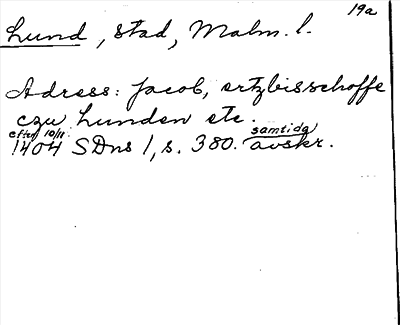 19a
Lund, stad, Malm. l.
Adress: Jacob, ertzbisschoffe
czu Lunden etc.
efter 10/11. samtida
1404 SDns 1, s. 380. avskr.